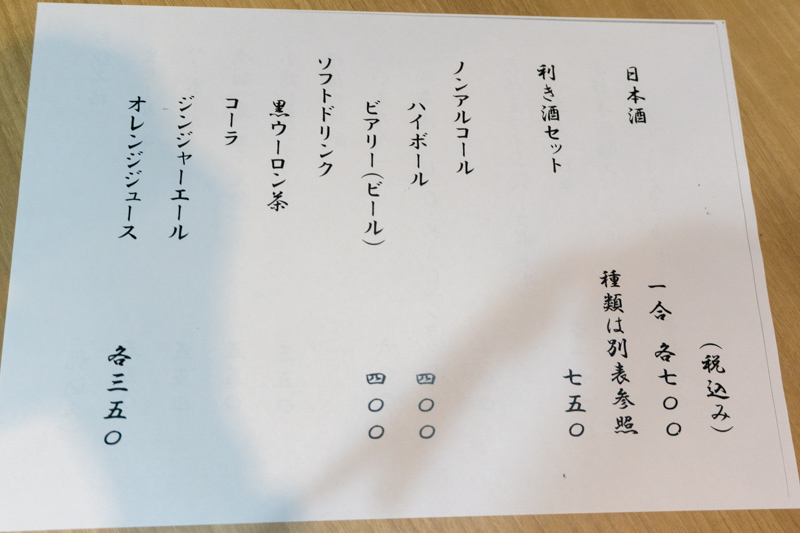 (税込み)
日本酒 一合 各七〇〇
種類は別表参照
利き酒セット 七五〇
ノンアルコール
ハイボール 四〇〇
ビアリー(ビール) 四〇〇
ソフトドリンク
黒ウーロン茶
コーラ
ジンジャーエール
オレンジジュース 各三五〇